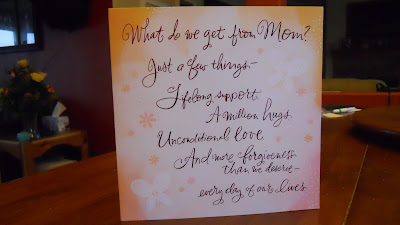 What do we get from Mom?
Just a few things—
Lifelong support
A million hugs
Unconditional love
And more forgiveness
than we deserve—
every day of our lives